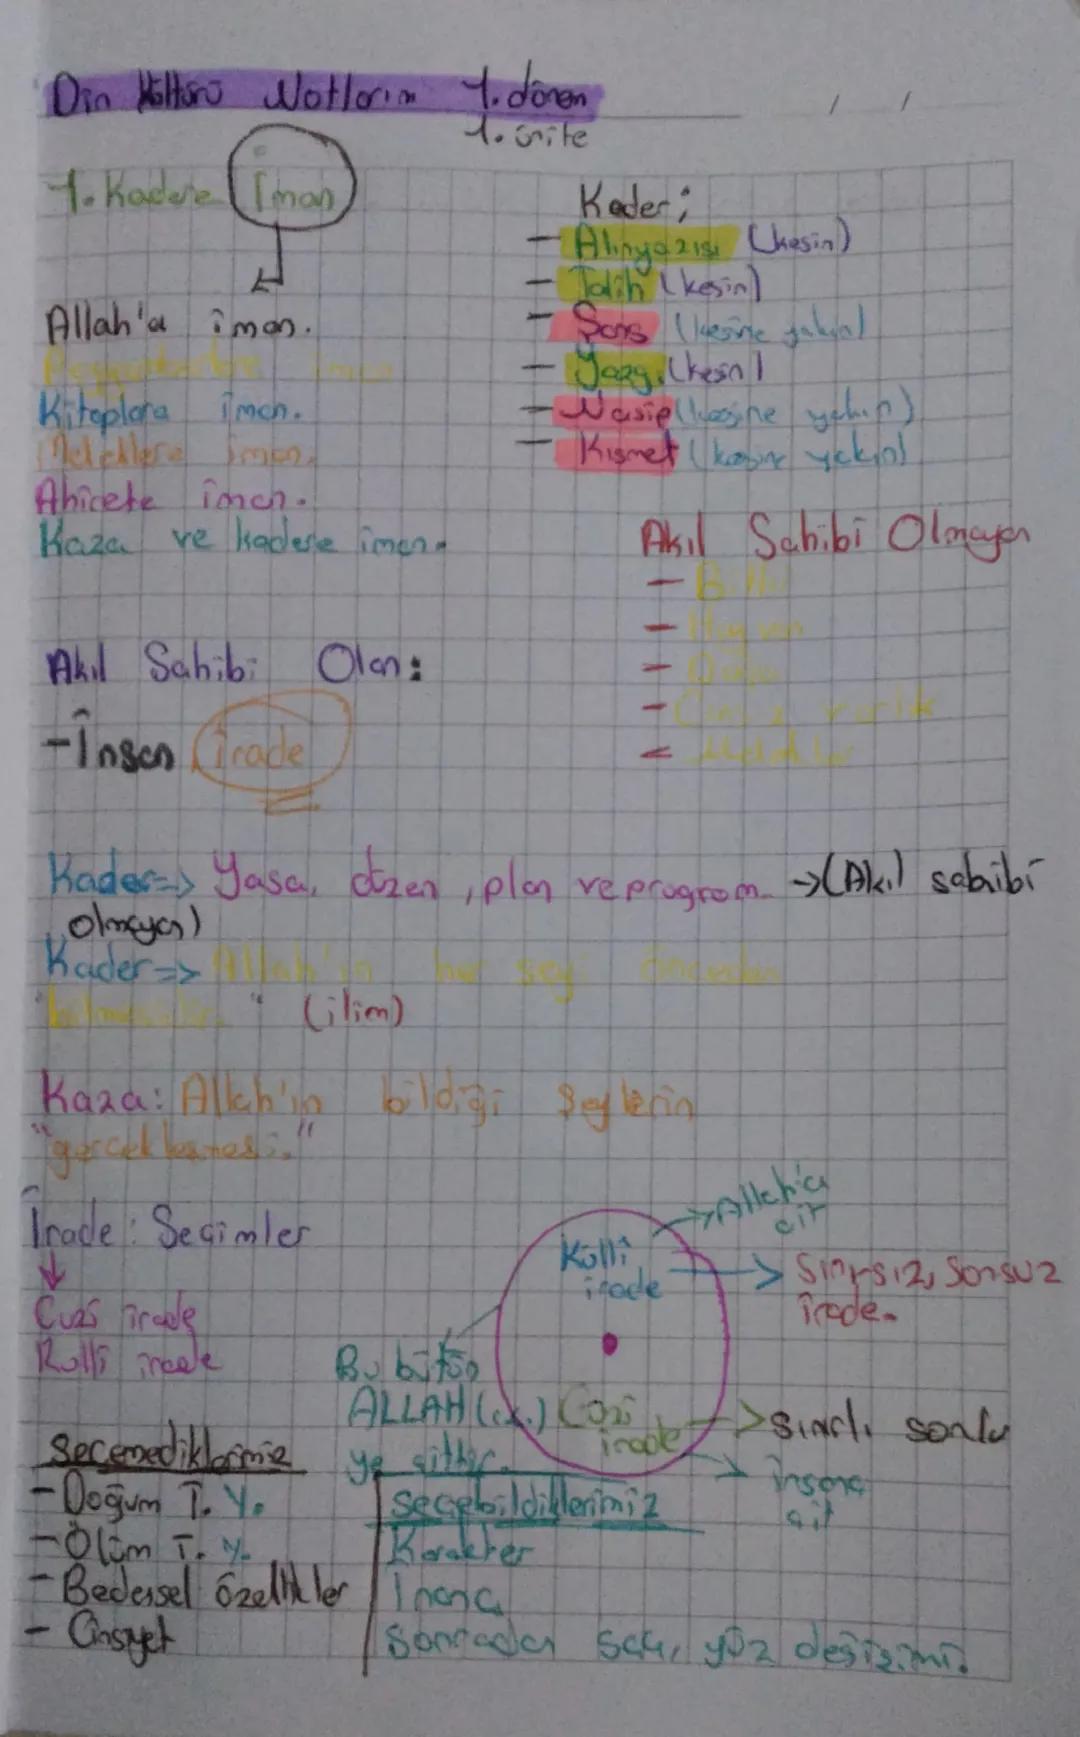 Din Kültürü Notlarım 1. dönem
1. ünite
1. Kadere İman
Allah'a iman.
Peygamberlere iman
Kitaplara iman.
Meleklere iman.
Ahirete iman.
Kaza ve kadere iman.
Kader;
- Alınyazısı (kesin)
- Talih (kesin)
- Şans (kesine yakın)
- Yazgı (kesin)
- Nasip (kesine yakın)
- Kısmet (kesine yakın)
Akıl Sahibi Olmayan
- Bitki
- Hayvan
- Doğa
- Cansız varlık
- Melekler
Akıl Sahibi Olan:
- İnsan İrade
Kader=> Yasa, düzen, plan ve program. →(Akıl sahibi
olmayan)
Kader=> Allah'ın her şeyi önceden
"bilmesidir." (ilim)
Kaza: Allah'ın bildiği şeylerin
"gerçekleşmesi."
İrade: Seçimler
Cüzi irade
Külli irade
Külli
irade
→Allah'a
ait
→ Sınırsız, Sonsuz
İrade.
Bu bütün
ALLAH (c.c.)
ye aittir.
Cüzi
irade
→ Sınırlı sonlu
→ insana
ait
Seçemediklerimiz
- Doğum T. Y.
- Ölüm T. Y.
- Bedensel özellikler
- Cinsiyet
Seçebildiklerimiz
Karakter
İnanç
Sonradan saç, yüz değişimi.